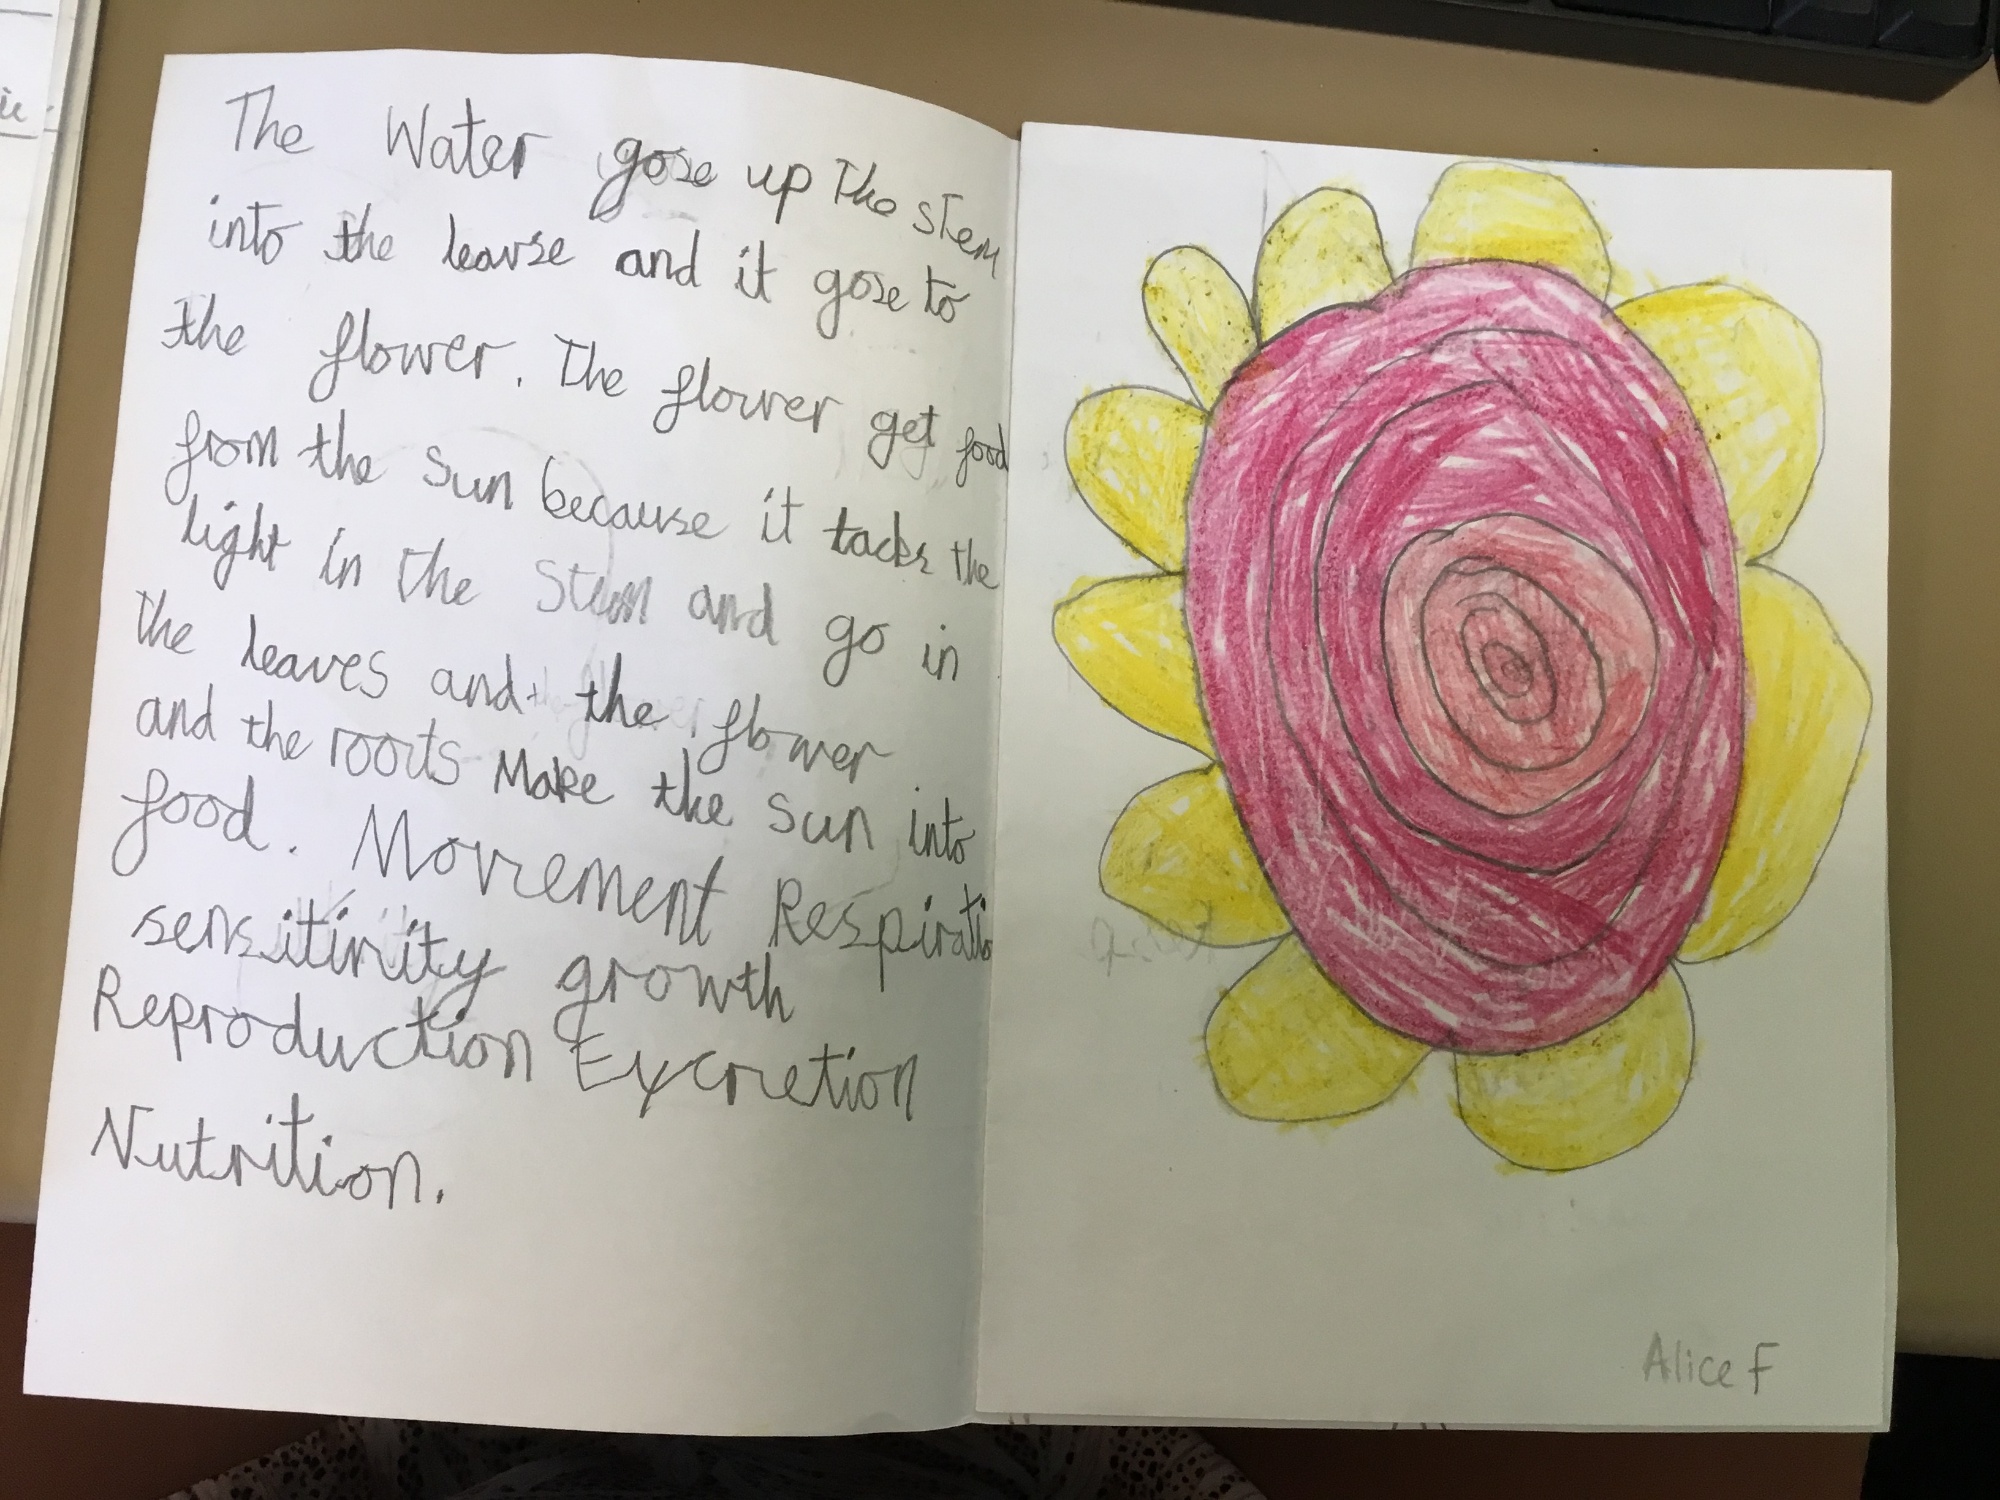 The Water gose up The stem
into the leavse and it gose to
the flower. The flower get food
from the sun because it tacks the
light in the Stem and go in
the leaves and the flower
and the roots Make the sun into
food. Movement Respiratio
sensitivity growth
Reproduction Excretion
Nutrition.
Alice F